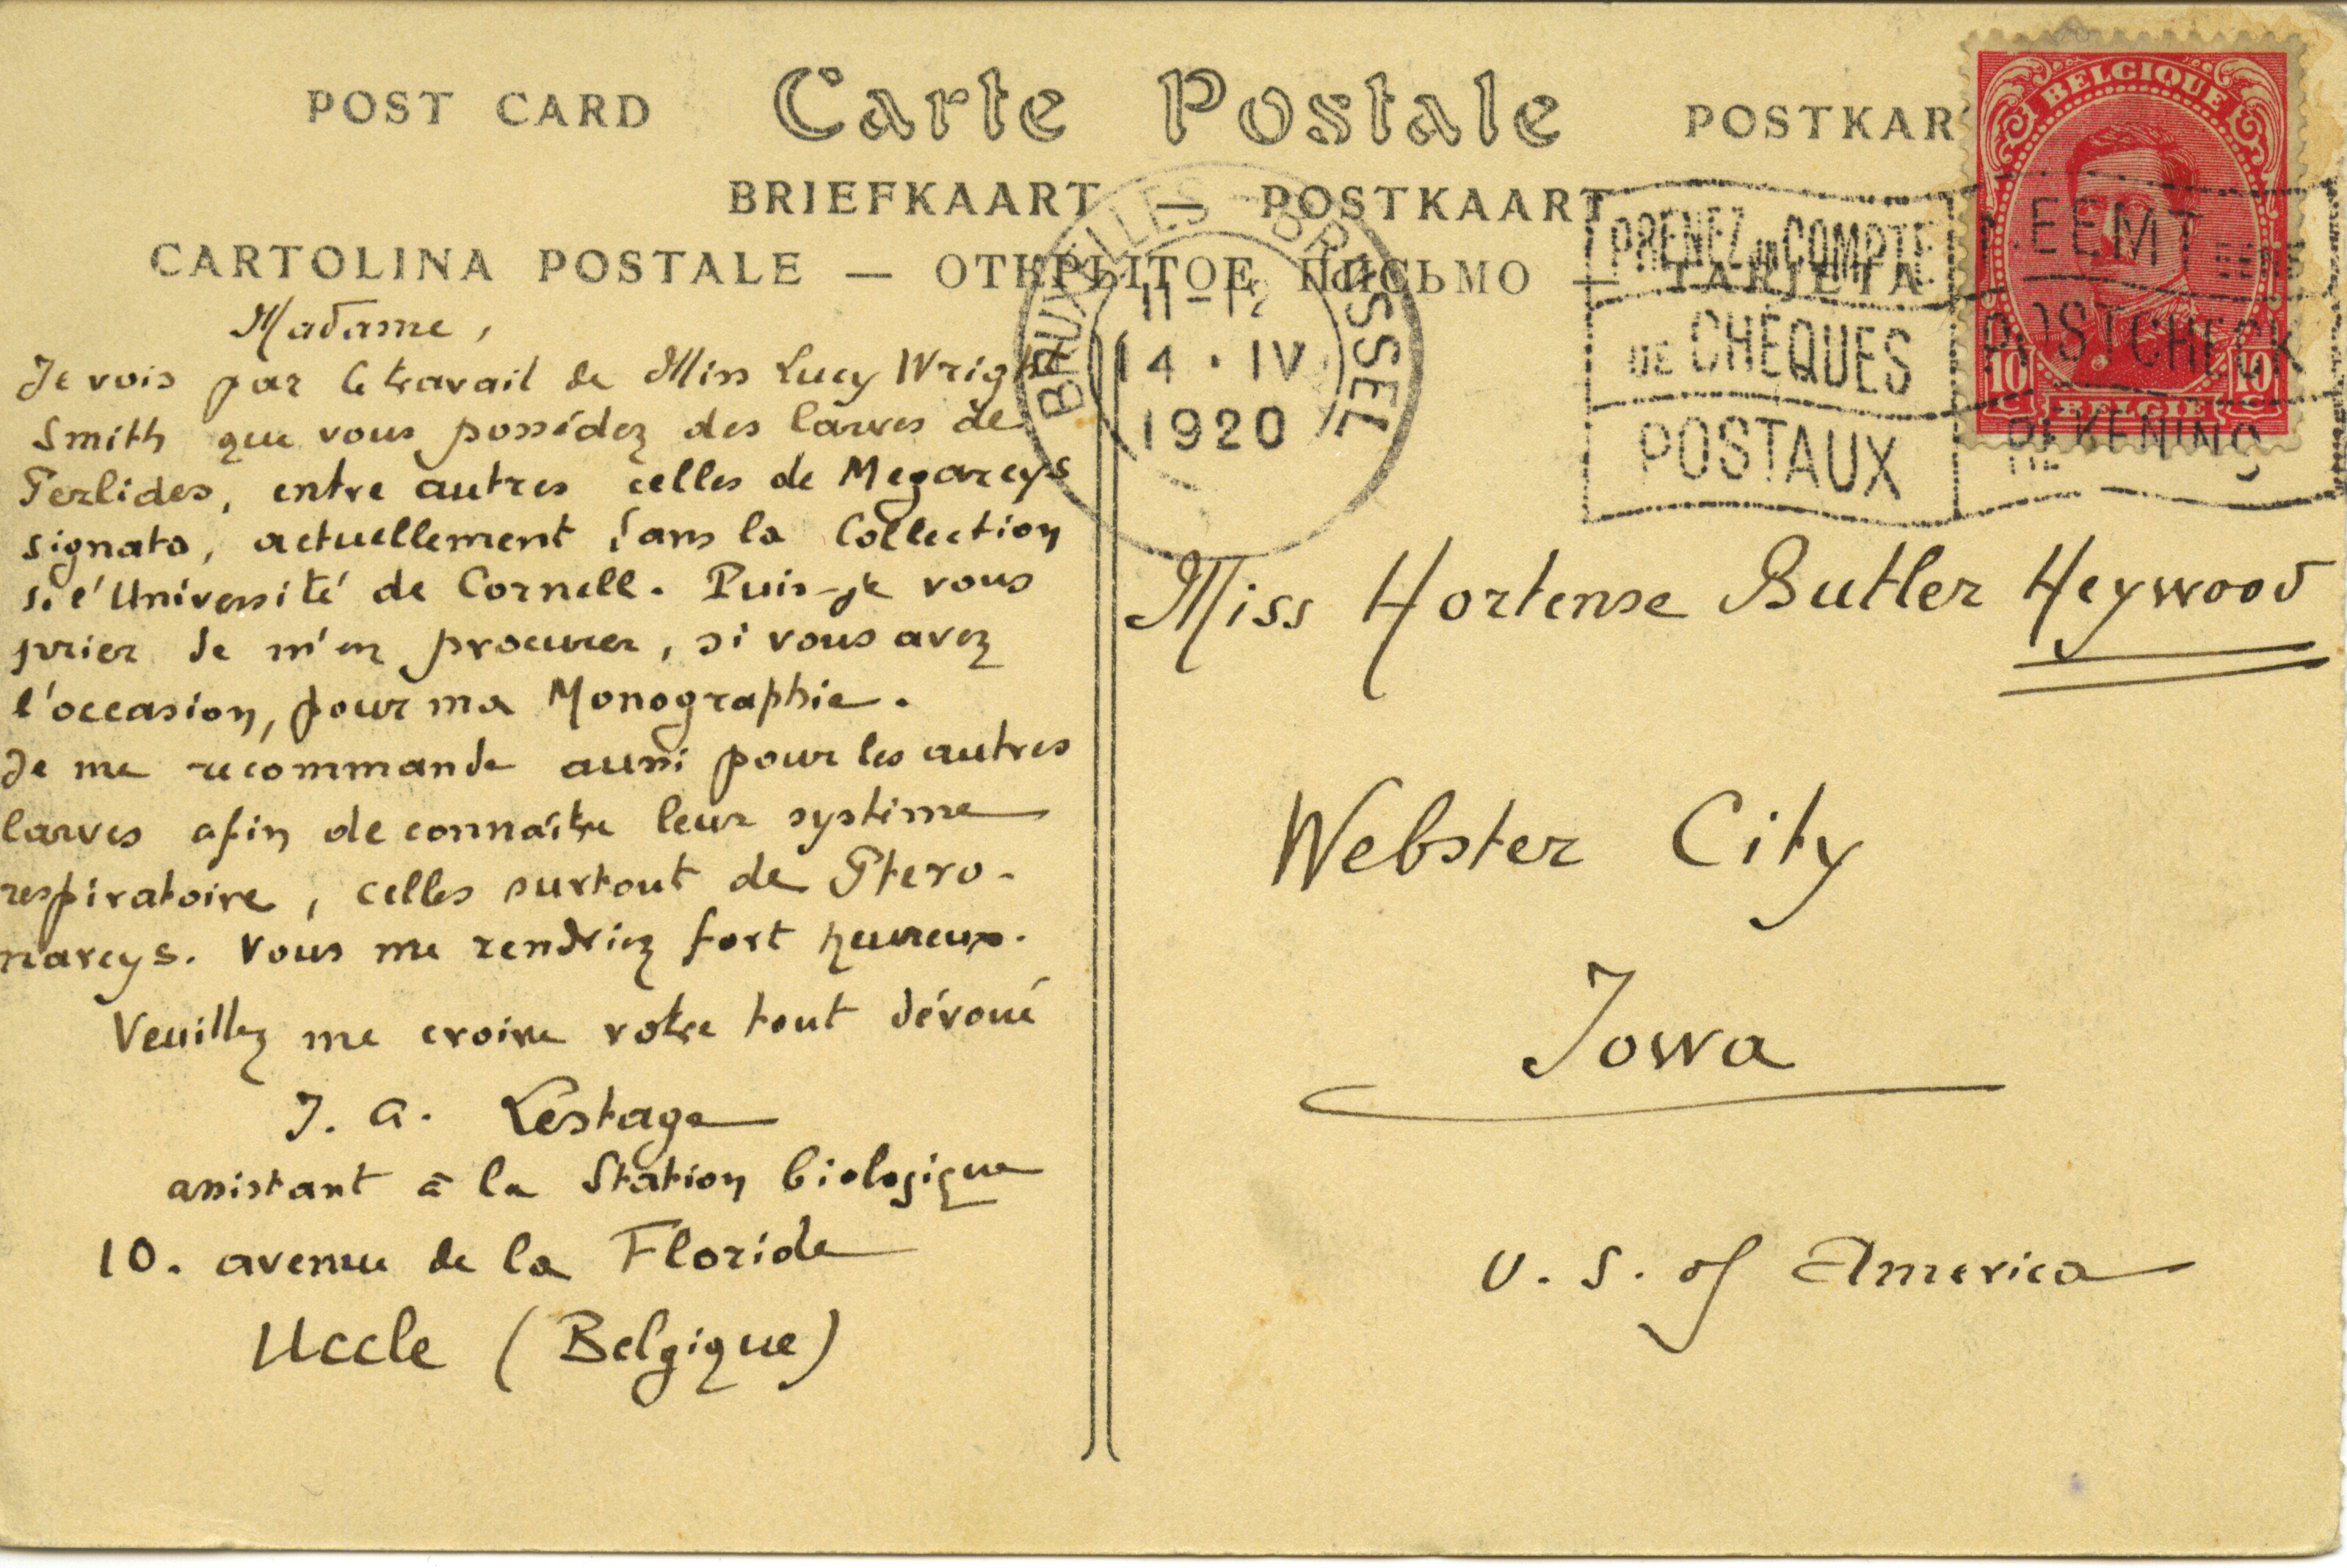 POST CARD Carte Postale POSTKAR
BRIEFKAART — POSTKAART
CARTOLINA POSTALE — ОТКРЫТОЕ ПИСЬМО — TARJETA
BELGIQUE
10 10
BELGIË
BRUXELLES BRUSSEL
11-12
14 · IV
1920
PRENEZ un COMPTE
DE CHÈQUES
POSTAUX
NEEMT EENE
POSTCHECK
REKENING
Madame,
Je vois par le travail de Miss Lucy Wright
Smith que vous possédez des larves de
Perlides, entre autres celles de Megarcys
signata, actuellement dans la Collection
de l'Université de Cornell. Puis-je vous
prier de m'en procurer, si vous avez
l'occasion, pour ma Monographie.
Je me recommande aussi pour les autres
larves afin de connaître leur système
respiratoire, celles surtout de Ptero-
narcys. Vous me rendriez fort heureux.
Veuillez me croire votre tout dévoué
J. A. Lestage
assistant à la Station biologique
10. avenue de la Floride
Uccle (Belgique)
Miss Hortense Butler Heywood
Webster City
Iowa
U. S. of America